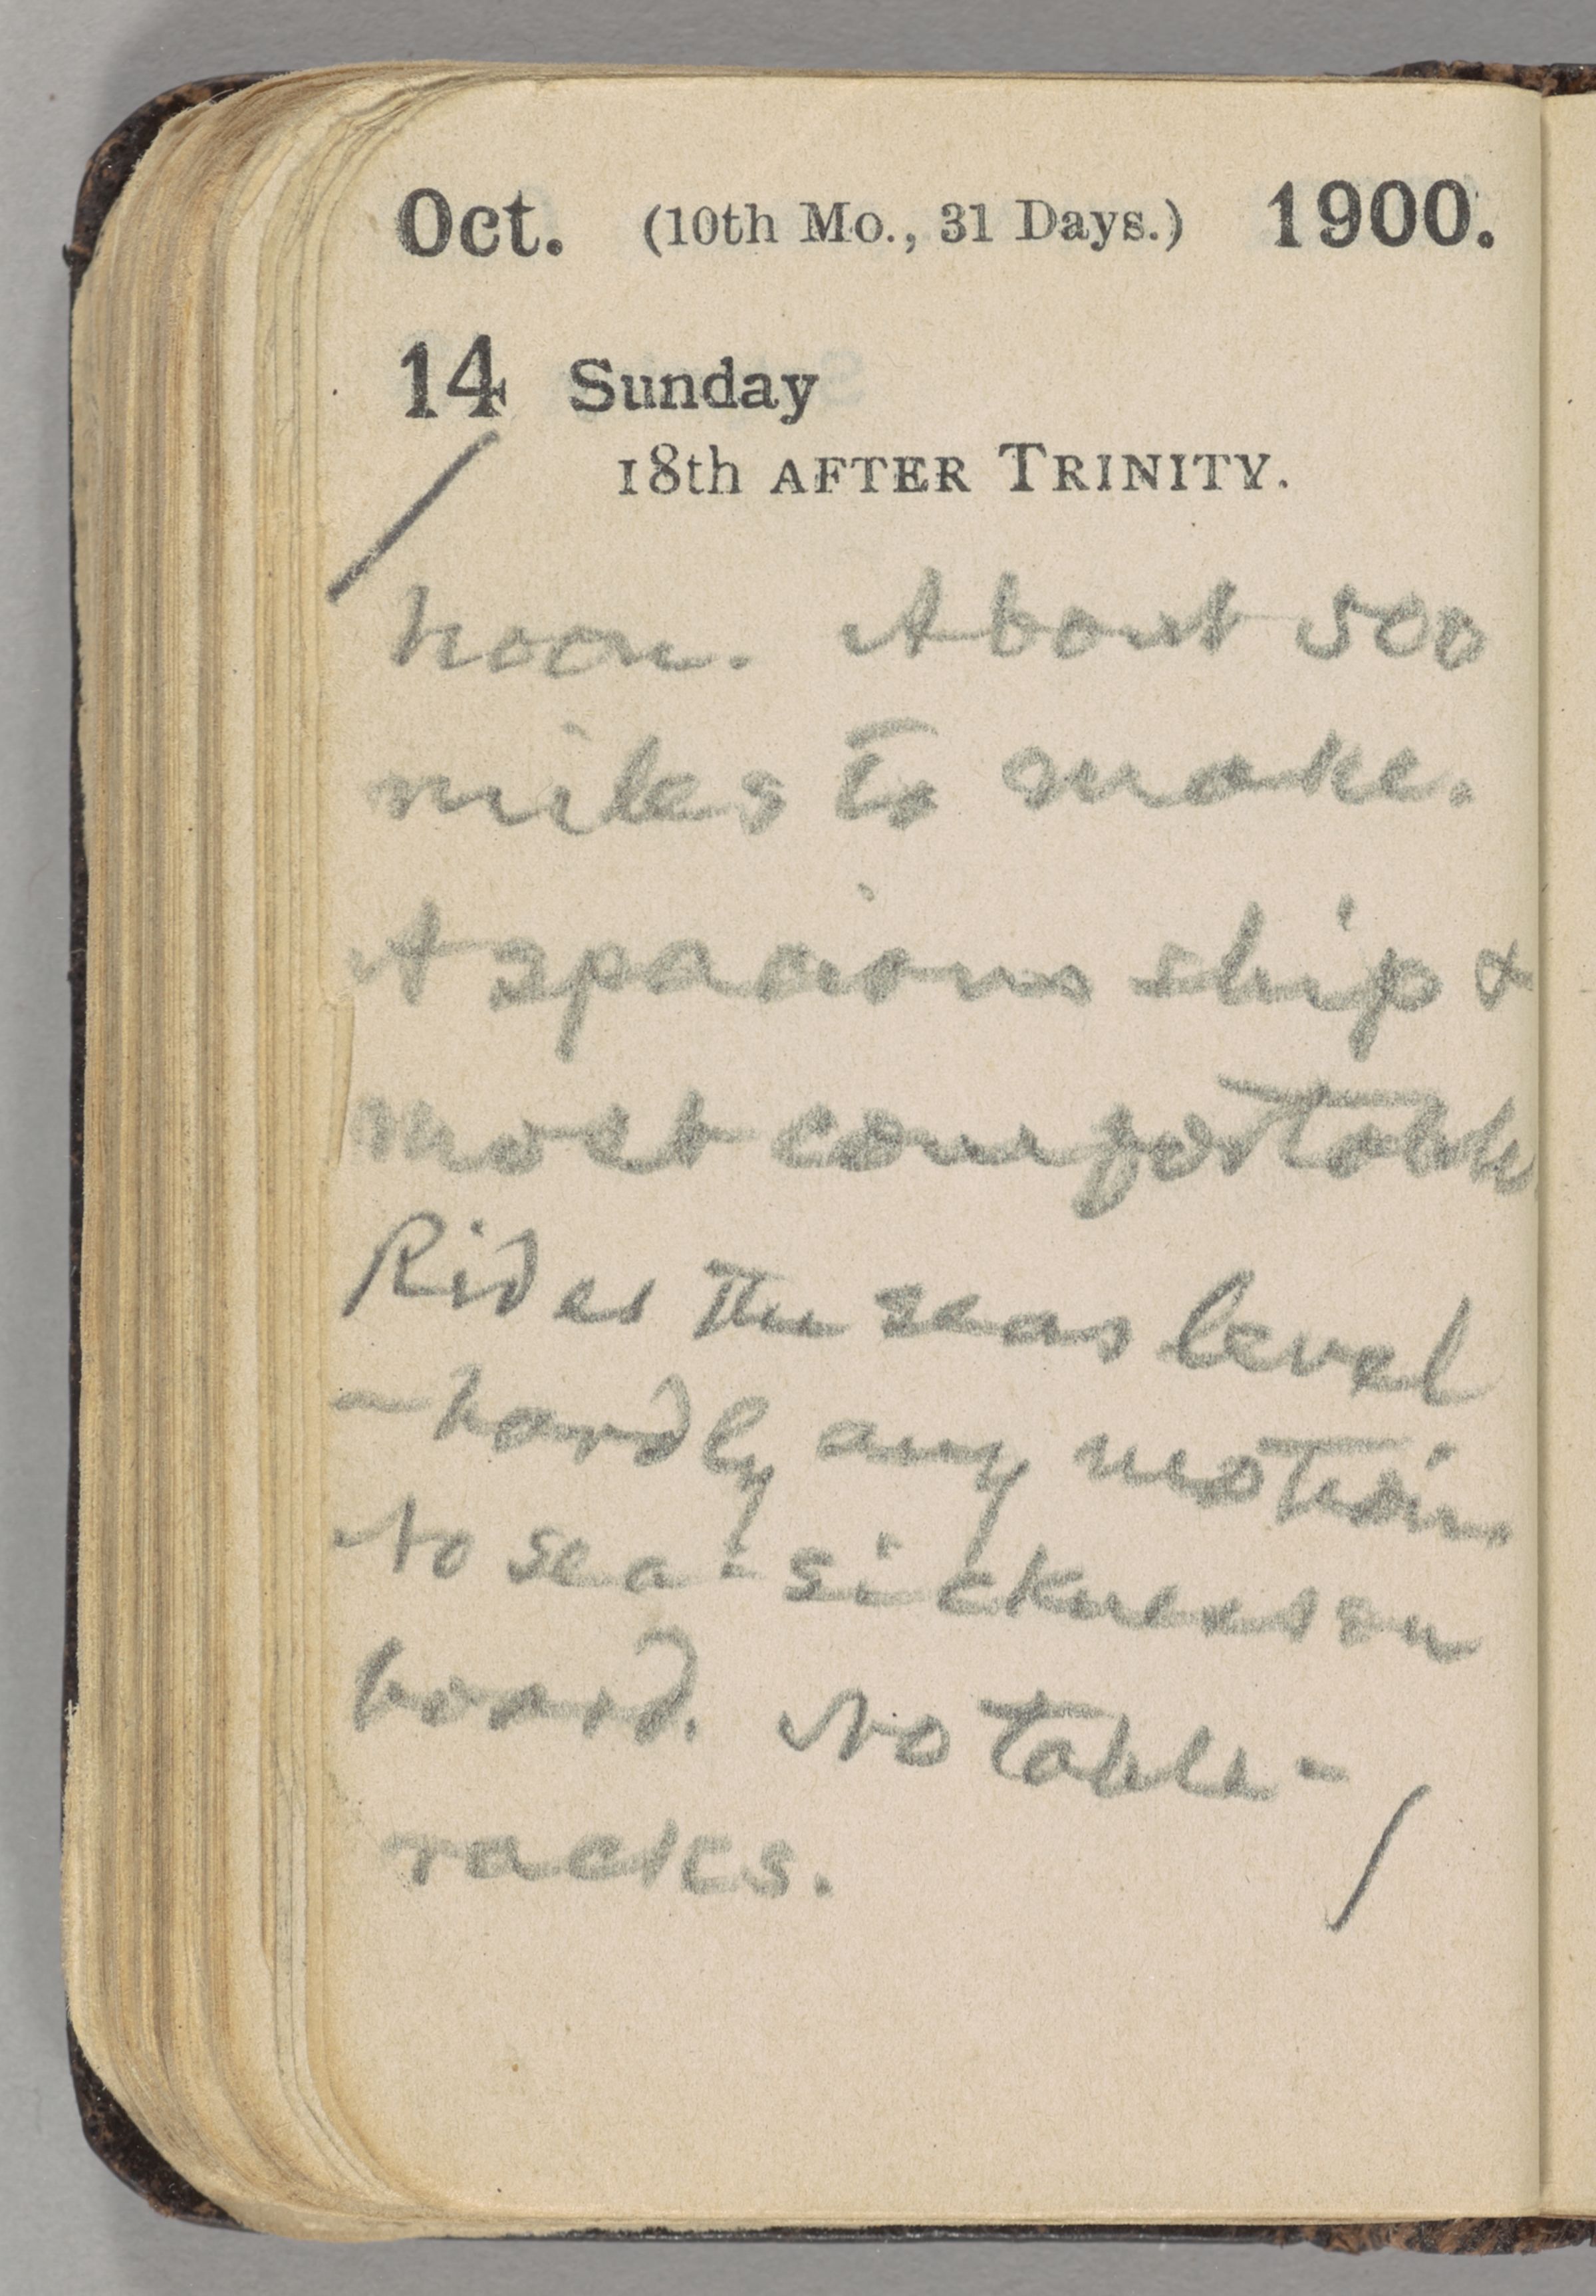 Oct. (10th Mo., 31 Days.) 1900.
14 Sunday
18th AFTER TRINITY.
noon. About 500
miles to make.
A spacious ship &
most comfortable
Rides the seas level
—hardly any motion.
No sea-sickness on
board. No table-
racks.